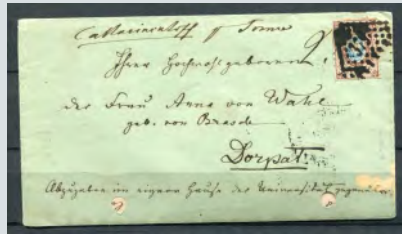 Ihrer Hochwohlgeboren
der Frau Anna von Wahl
geb. von Brasch
Dorpat.
Abzugeben im eignen Hause der Universität gegenüber